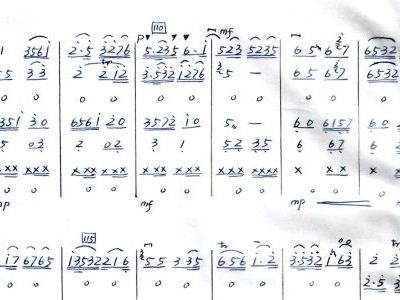 110
p mf
1 3561 | 2·5 3276 | 5·235 6·1 | 523 5235 | 65 667 | 6532
55 33 | 2 212 | 3·532 1276 | 5 — | 65 667 | 6532
0 0 | 0 0 | 0 0 | 0 0 | 0 0 | 0
351 30 | 6561 20 | 3572 10 | 5 — | 60 6157 | 60
5 03 | 2 02 | 3 1 | 52 35 | 6 67 | 6
x xx xxx | x xx xxx | xxx xxx | xxx xxxx | x xxx | x
0 0 | 0 0 | 0 0 | 0 0 | 0 0 | 0
mp mf mp
115
176765 | 13532216 | 55 335 | 656 1·2 | 3·532 163 | 2 2
2·5 3
0 0 | 0 0 | 0 0 | 0 0 | 0 0